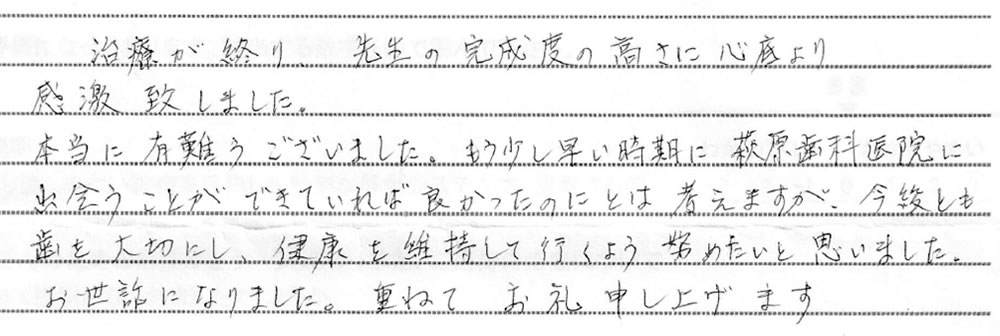 治療が終り、先生の完成度の高さに心底より
感激致しました。
本当に有難うございました。もう少し早い時期に萩原歯科医院に
出会うことができていれば良かったのにとは考えますが、今後とも
歯を大切にし、健康を維持して行くよう努めたいと思いました。
お世話になりました。重ねてお礼申し上げます